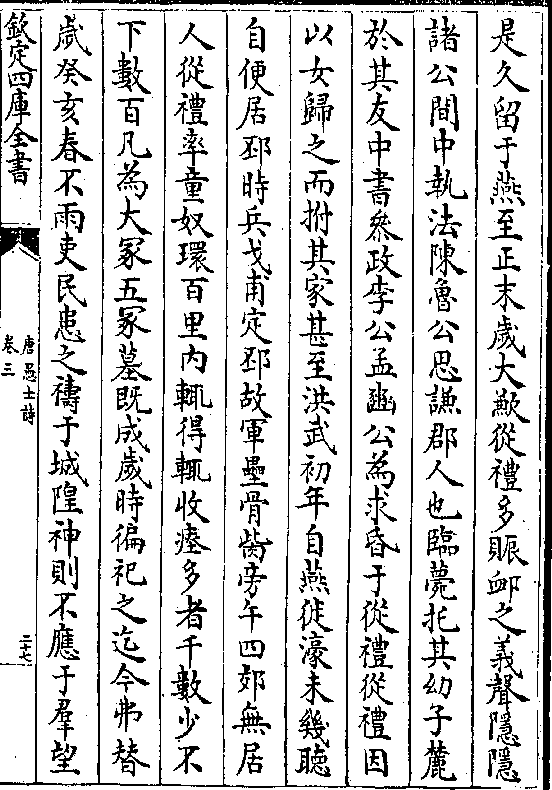 是久留于燕至正末歲大歉從禮多賑䘏之義聲隱隱
諸公間中執法陳魯公思謙郡人也臨薨托其幼子麓
於其友中書叅政李公孟豳公為求昏于從禮從禮因
以女歸之而拊其家甚至洪武初年自燕徙濠未幾聽
自便居邳時兵戈甫定邳故軍壘骨胔旁午四郊無居
人從禮率童奴環百里内輒得輒收瘞多者千數少不
下數百凡為大冢五冢墓既成歲時徧祀之迄今弗替
歲癸亥春不雨吏民患之禱于城隍神則不應于羣望
欽定四庫全書
唐愚士詩
卷三
二十七